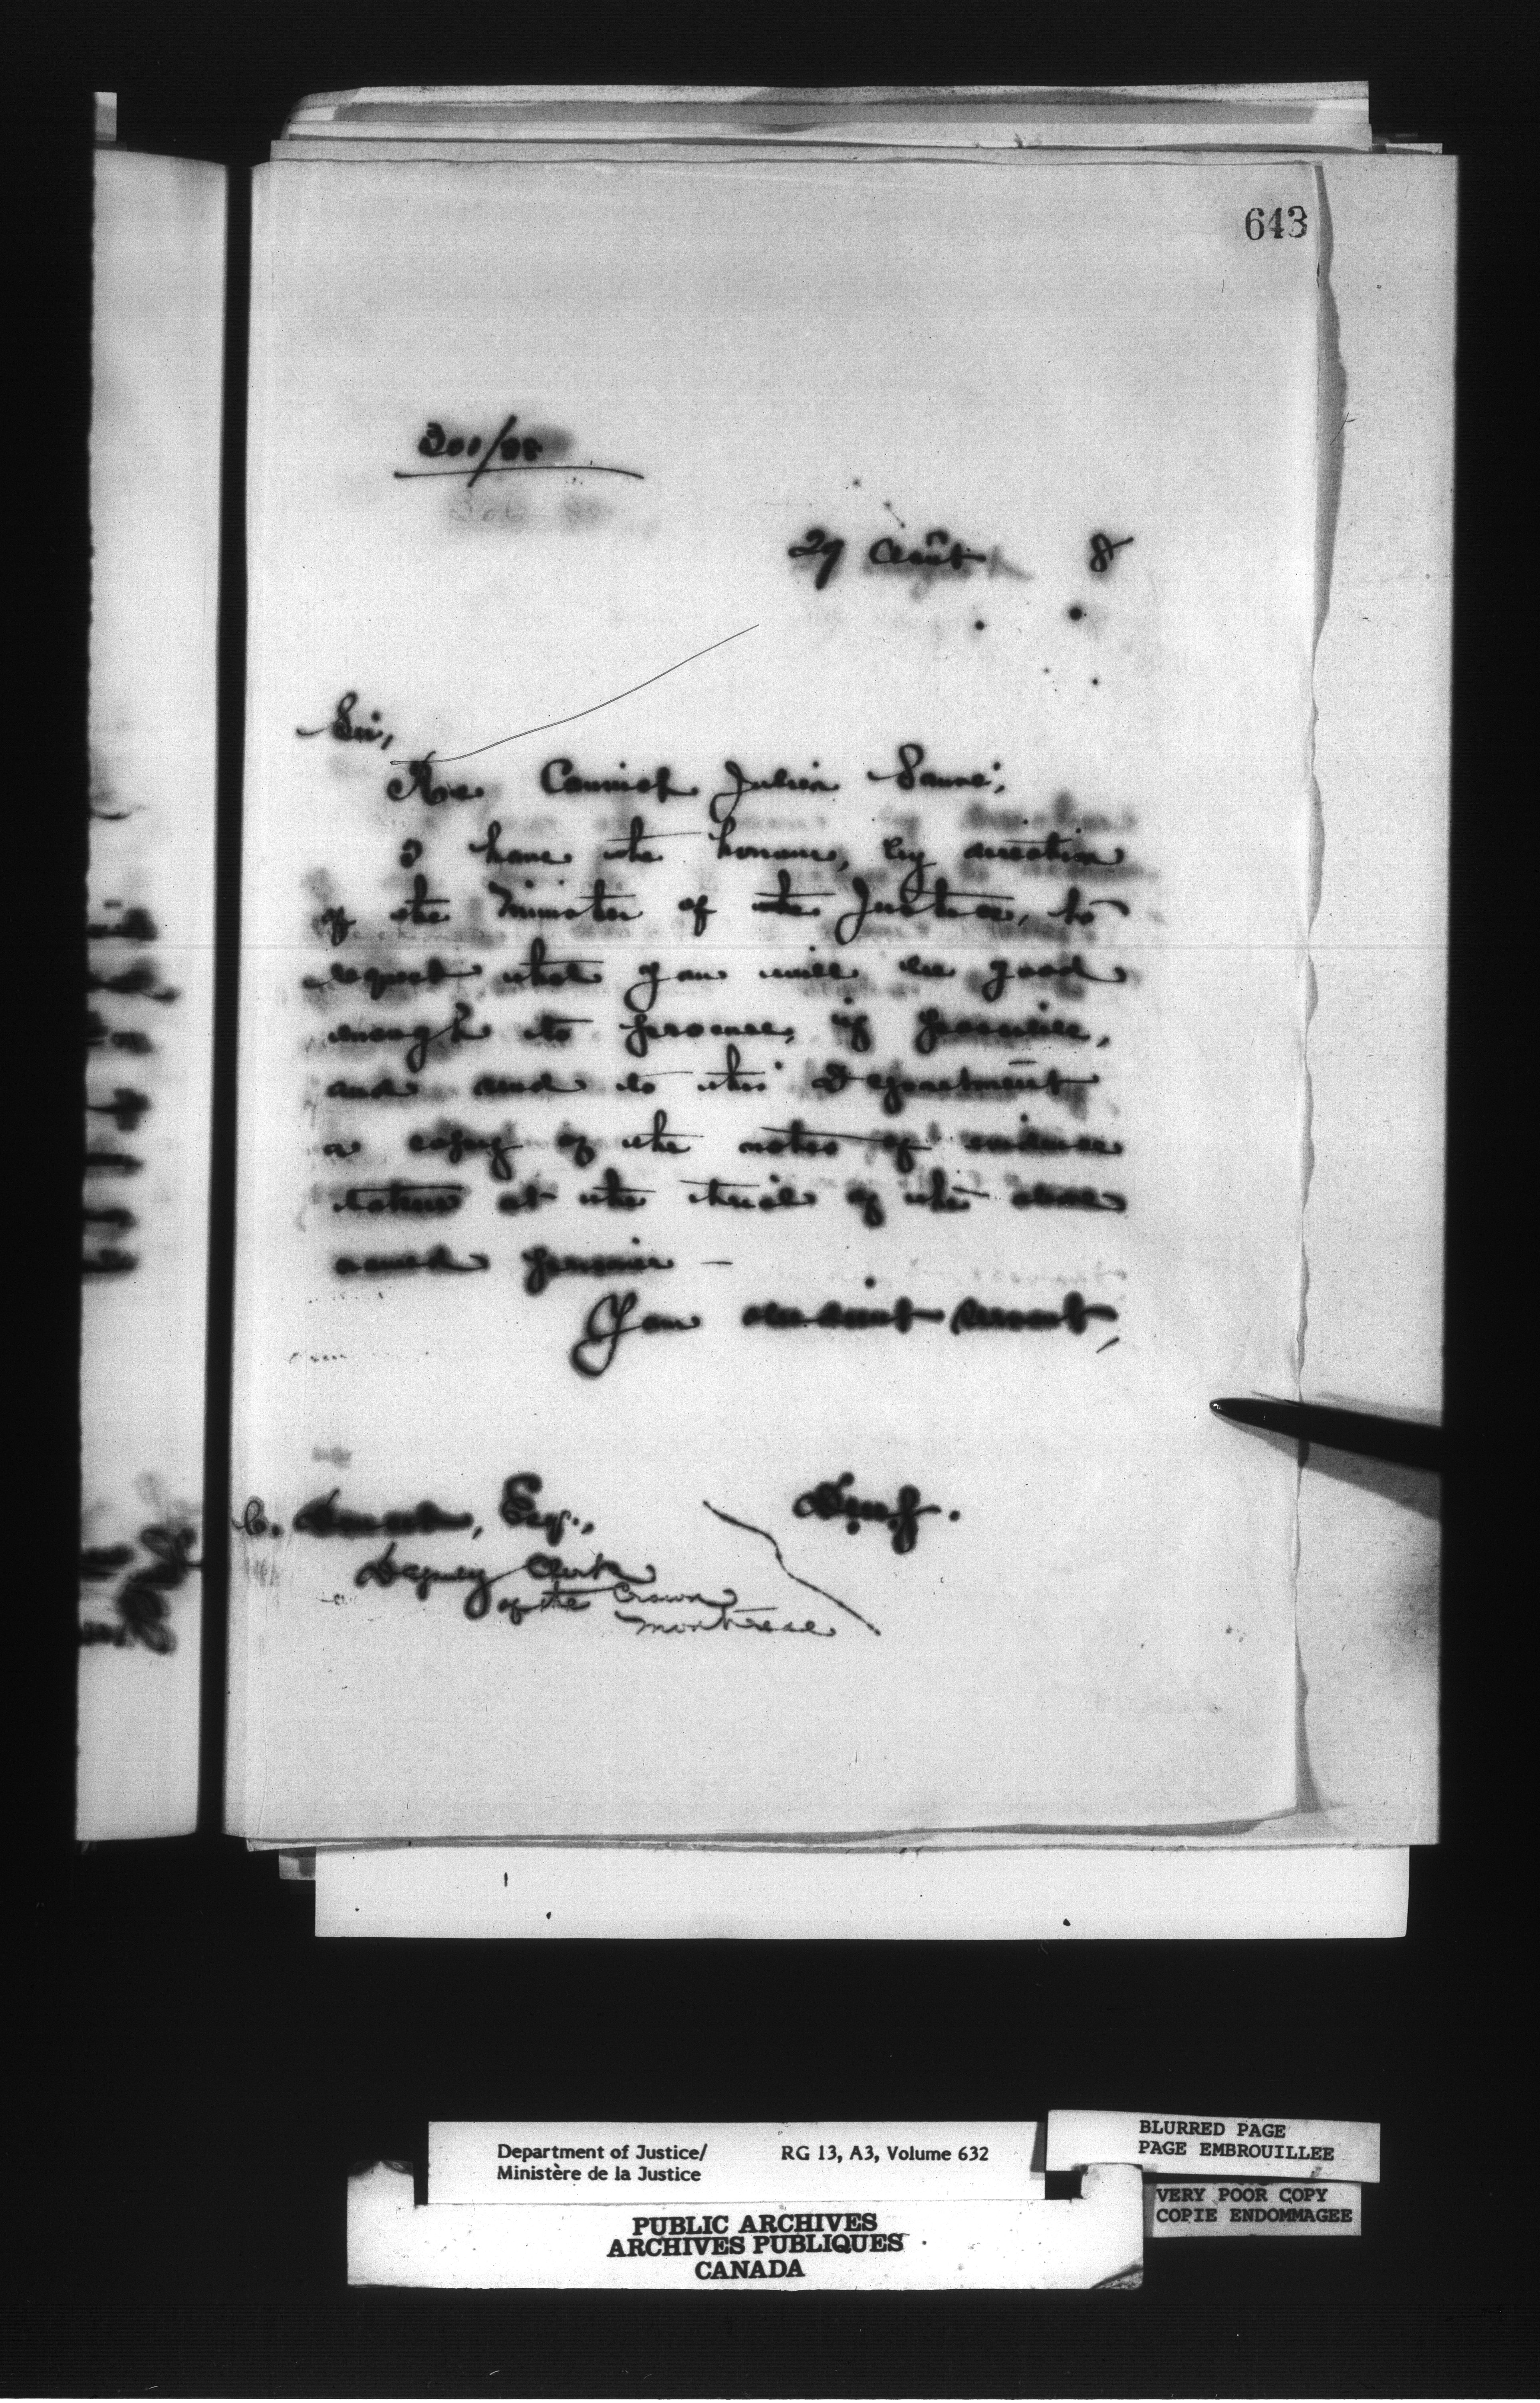 643
300/88
29 Août 8
Sir,
Re Convict Julien Sauvé,
I have the honour, by direction
of the Minister of the Justice, to
request that you will be good
enough to procure, if possible,
and send to this Department
a copy of the notes of evidence
taken at the trial of the above
named prisoner —
Your obedient servant,
C. Esq.,
Deputy Clerk
of the Crown
Montreal
Department of Justice/ RG 13, A3, Volume 632
Ministère de la Justice
PUBLIC ARCHIVES
ARCHIVES PUBLIQUES
CANADA
BLURRED PAGE
PAGE EMBROUILLEE
VERY POOR COPY
COPIE ENDOMMAGEE